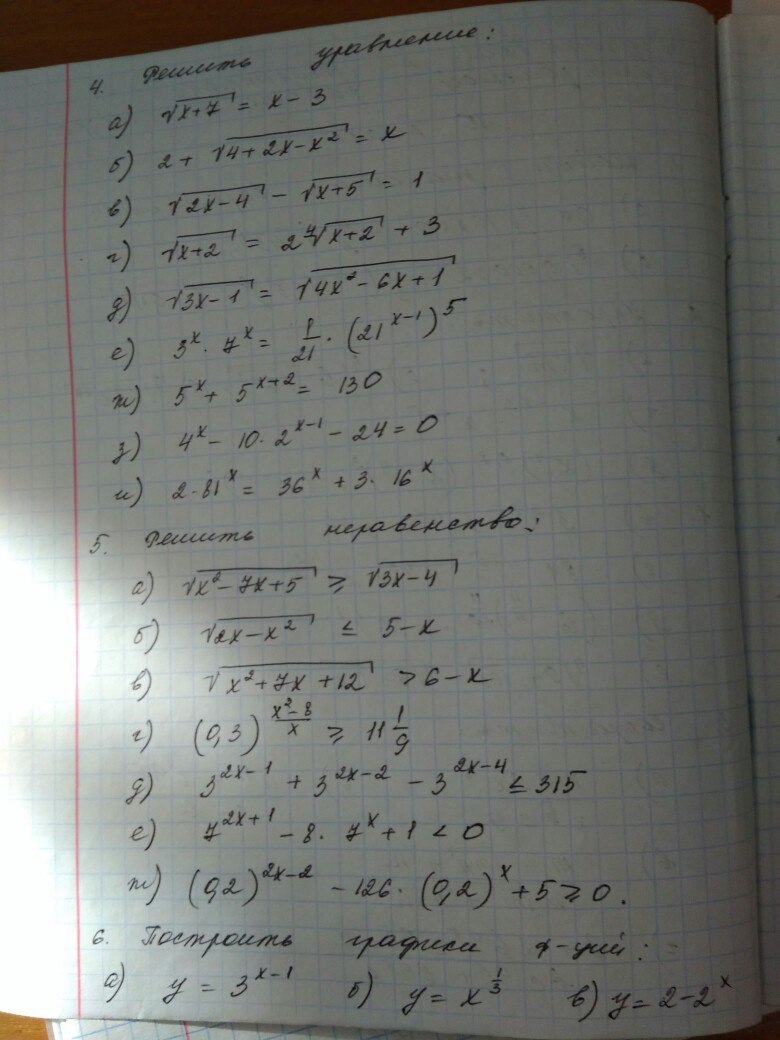 4. Решить уравнение:
а) √(x+7) = x - 3
б) 2 + √(4+2x-x²) = x
в) √(2x-4) - √(x+5) = 1
г) √(x+2) = 2⁴√(x+2) + 3
д) √(3x-1) = √(4x²-6x+1)
е) 3^x · 7^x = 1/21 · (21^(x-1))^5
ж) 5^x + 5^(x+2) = 130
з) 4^x - 10 · 2^(x-1) - 24 = 0
и) 2·81^x = 36^x + 3 · 16^x
5. Решить неравенство:
а) √(x²-7x+5) ≥ √(3x-4)
б) √(2x-x²) ≤ 5-x
в) √(x²+7x+12) > 6-x
г) (0,3)^((x²-8)/x) ≥ 11 1/9
д) 3^(2x-1) + 3^(2x-2) - 3^(2x-4) ≤ 315
е) 7^(2x+1) - 8 · 7^x + 1 < 0
ж) (0,2)^(2x-2) - 126 · (0,2)^x + 5 ≥ 0.
6. Построить графики ф-ций:
а) y = 3^(x-1) б) y = x^(1/3) в) y = 2-2^x